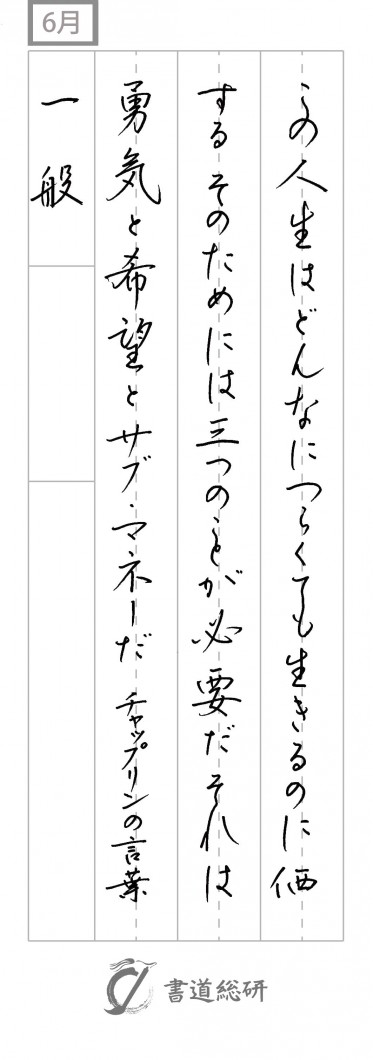 6月
この人生はどんなにつらくても生きるのに価
するそのためには三つのことが必要だそれは
勇気と希望とサブ・マネーだ チャップリンの言葉
一般
書道総研